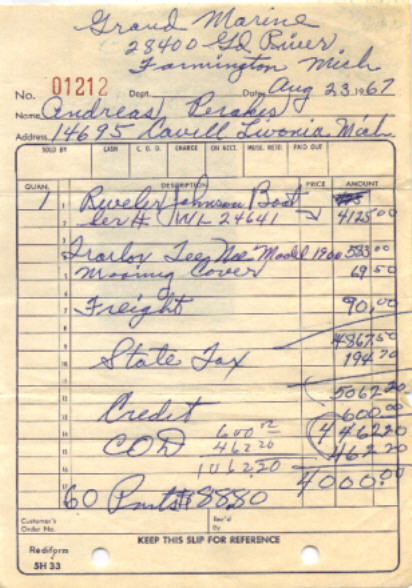 Grand Marine
28400 Gd River
Farmington Mich.
No. 01212 Dept. Date Aug 23 1967
Name Andreas Perakis
Address 14695 Cavell Livonia Mich.
SOLD BY CASH C. O. D. CHARGE ON ACCT. MDSE. RETD. PAID OUT
QUAN. DESCRIPTION PRICE AMOUNT
1 1 Johnson Boat
2 Ser # 24641 4125 00
3
4 Tee Nee Model 1900 583 00
5 Mooring Cover 69 50
6
7 Freight 90.00
8
9 4867 50
10 State Tax 194 70
11
12 5062 20
13 Credit 600.00
14 COD 600 00 4462 20
15 462 20 462 20
16 1062.20
17 4000.00
60 88 80
Customer's
Order No.
Rec'd
By
KEEP THIS SLIP FOR REFERENCE
Rediform
5H 33